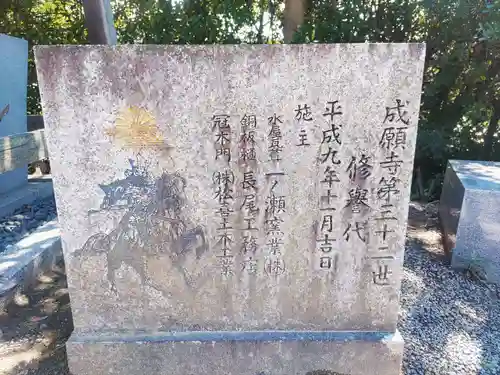 成願寺第三十二世
修譽代
平成九年十一月吉日
施主
水屋 一ノ瀬窯業㈱
銅板樋 長尾工務店
冠木門 ㈱ 土木工業